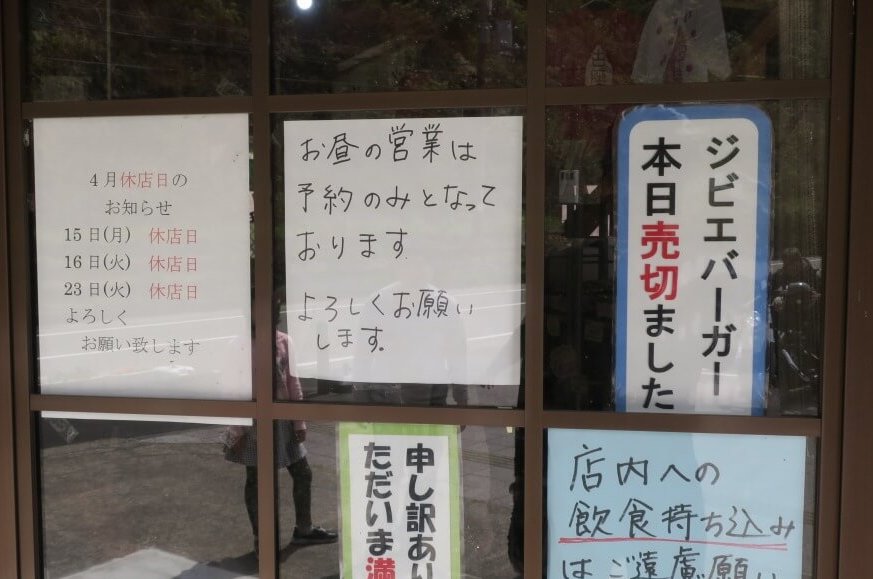 4月休店日の
お知らせ
15日(月) 休店日
16日(火) 休店日
23日(火) 休店日
よろしく
お願い致します
お昼の営業は
予約のみとなって
おります
よろしくお願い
します。
ジビエバーガー
本日売切ました
申し訳あり
ただいま満
店内への
飲食持ち込み
はご遠慮願い